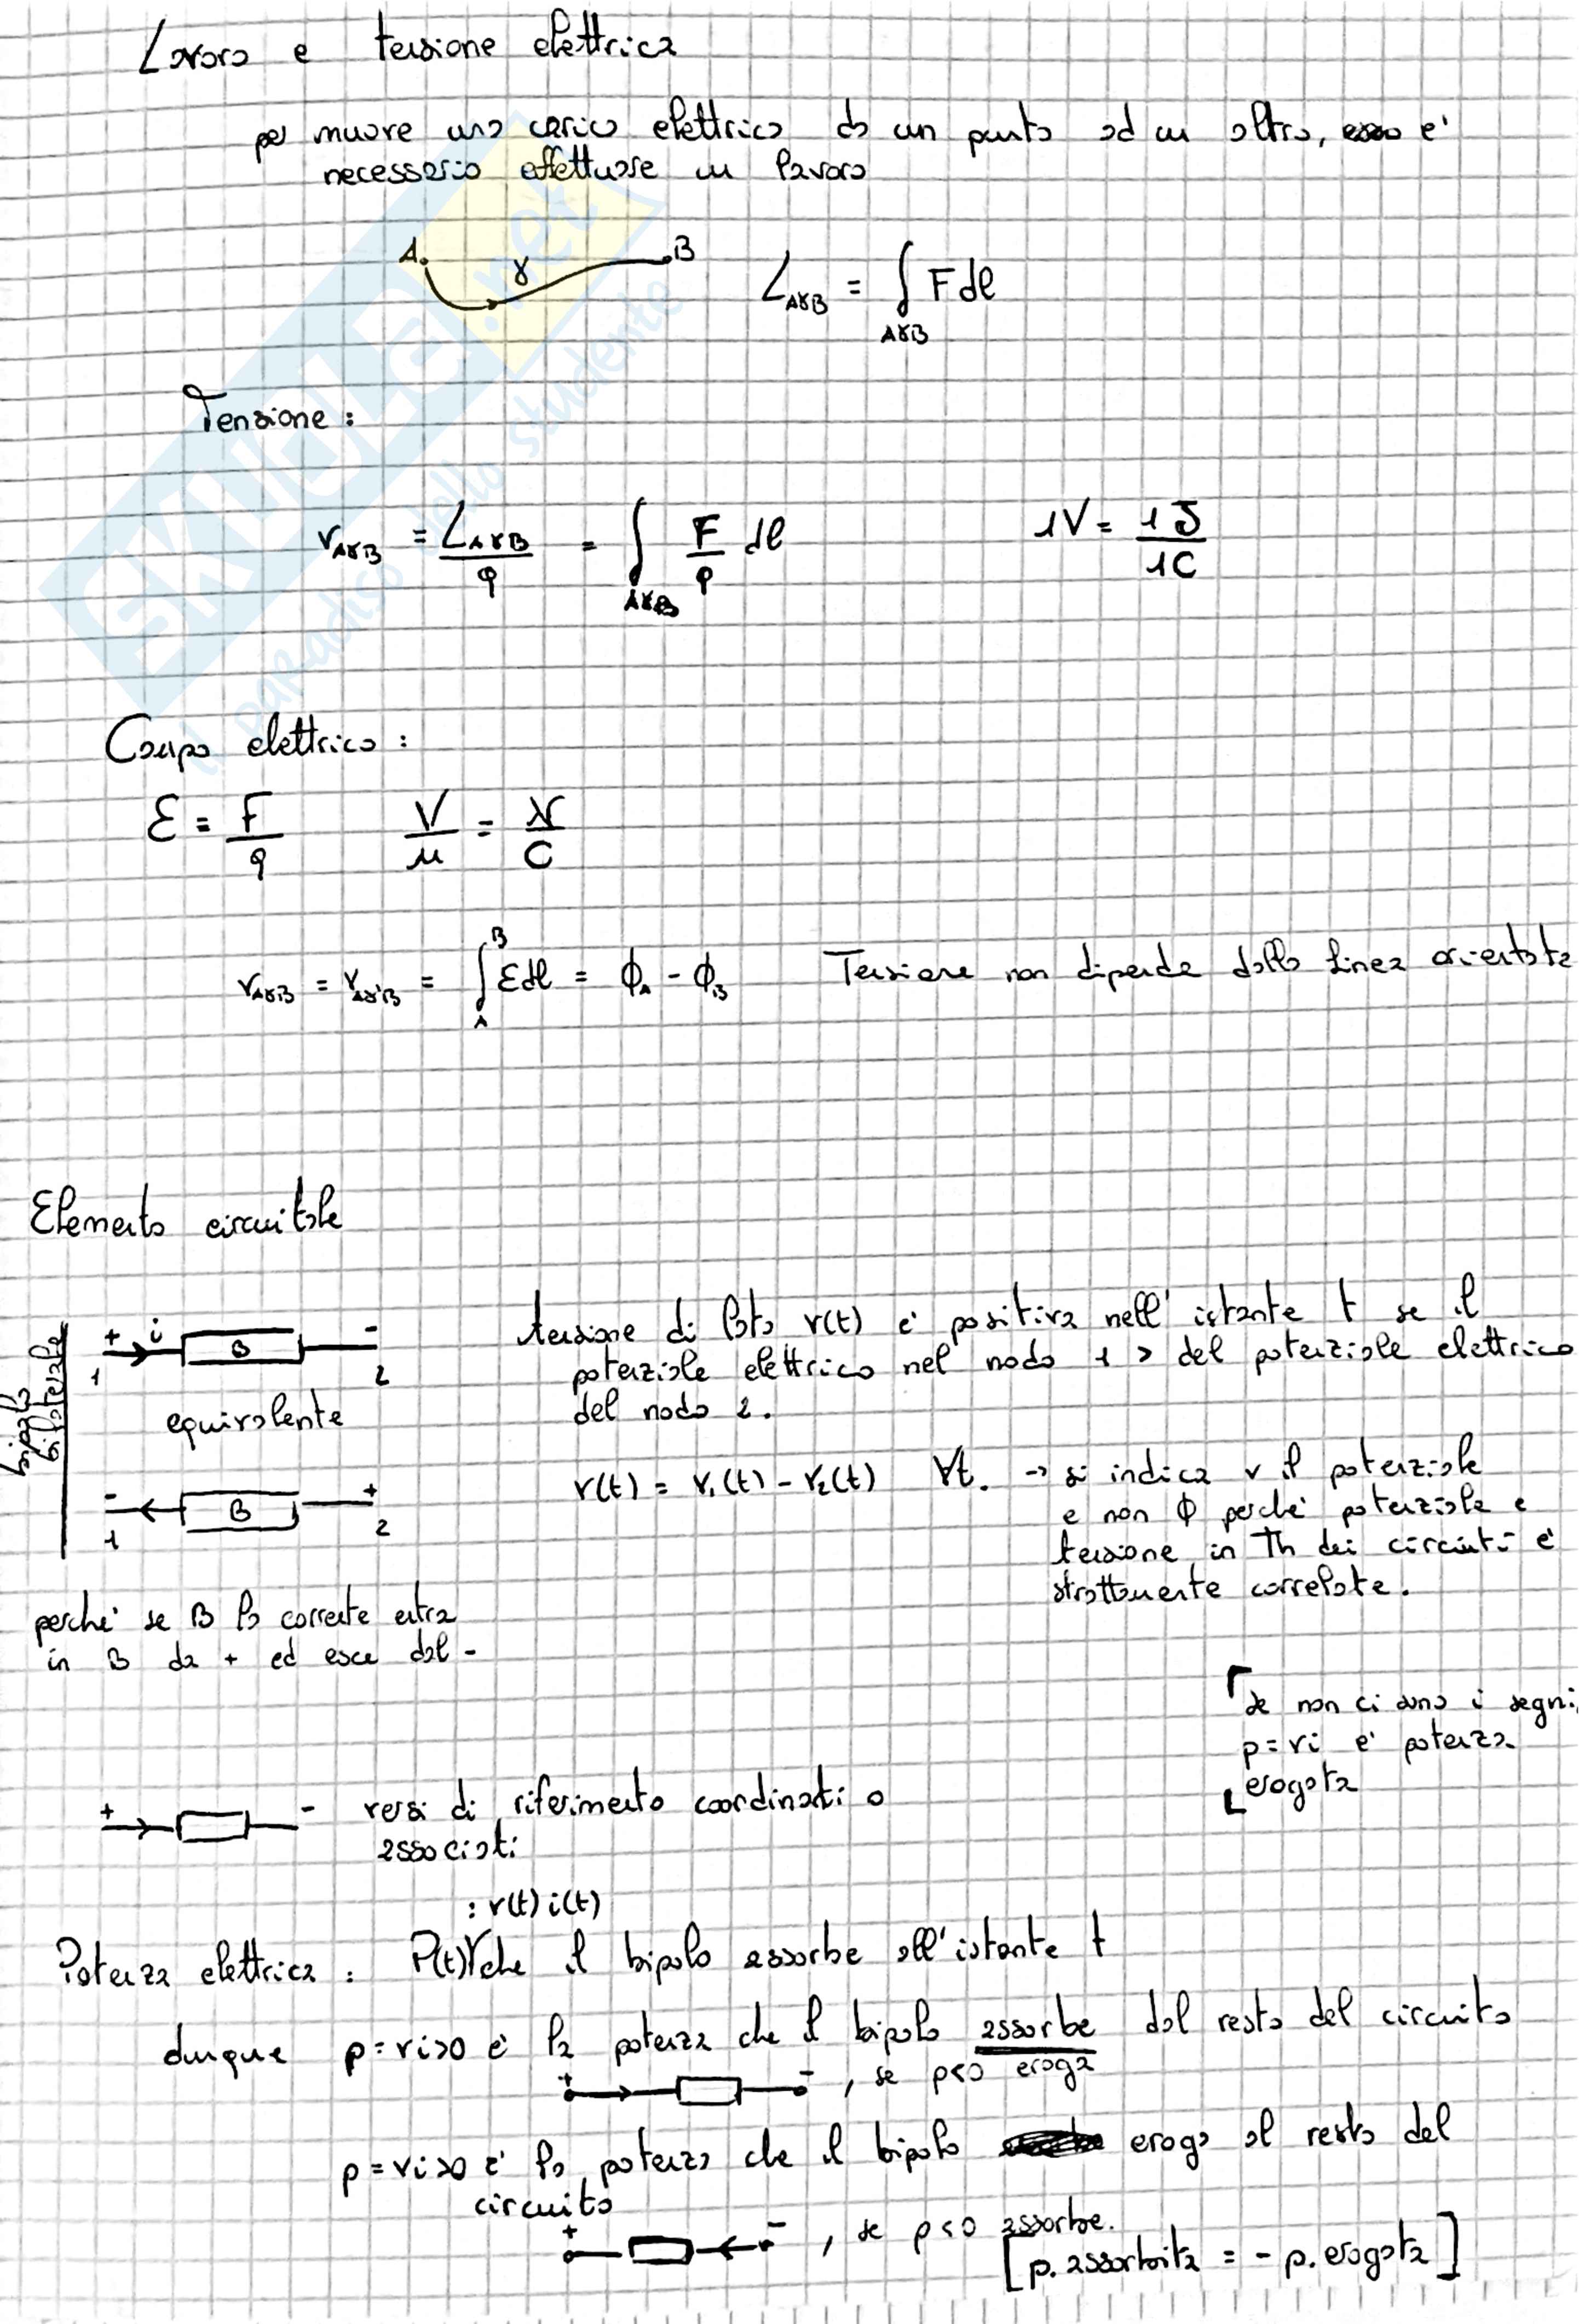 Lavoro e tensione elettrica
per muove una carica elettrica da un punto ad un altro, è
necessario effettuare un lavoro
A γ B L_AγB = ∫_AγB F dl
Tensione :
v_AγB = L_AγB / q = ∫_AγB F/q dl 1V = 1J / 1C
Campo elettrico :
Ɛ = F/q V/m = N/C
v_AγB = v_Aγ'B = ∫_A^B Ɛ dl = ϕ_A - ϕ_B Tensione non dipende dalla linea orientata
Elemento circuitale
bipolo
bilaterale
+ i B -
1 2
equivalente
- B +
1 2
tensione di lato v(t) è positiva nell'istante t se il
potenziale elettrico nel nodo 1 > del potenziale elettrico
del nodo 2.
v(t) = v₁(t) - v₂(t) ∀t. → si indica v il potenziale
e non ϕ perché potenziale e
tensione in Th dei circuiti è
strettamente correlate.
perché se B la corrente entra
in B da + ed esce dal -
se non ci sono i segni,
p=vi è potenza
erogata
+ - versi di riferimento coordinati o
associati
: v(t) i(t)
Potenza elettrica : P(t) che il bipolo assorbe all'istante t
dunque p=vi>0 è la potenza che il bipolo assorbe dal resto del circuito
+ - , se p<0 eroga
p=vi>0 è la potenza che il bipolo eroga al resto del
circuito
+ - , se p<0 assorbe.
[p. assorbita = - p. erogata]
SKUOLA.net
il paradiso dello studente